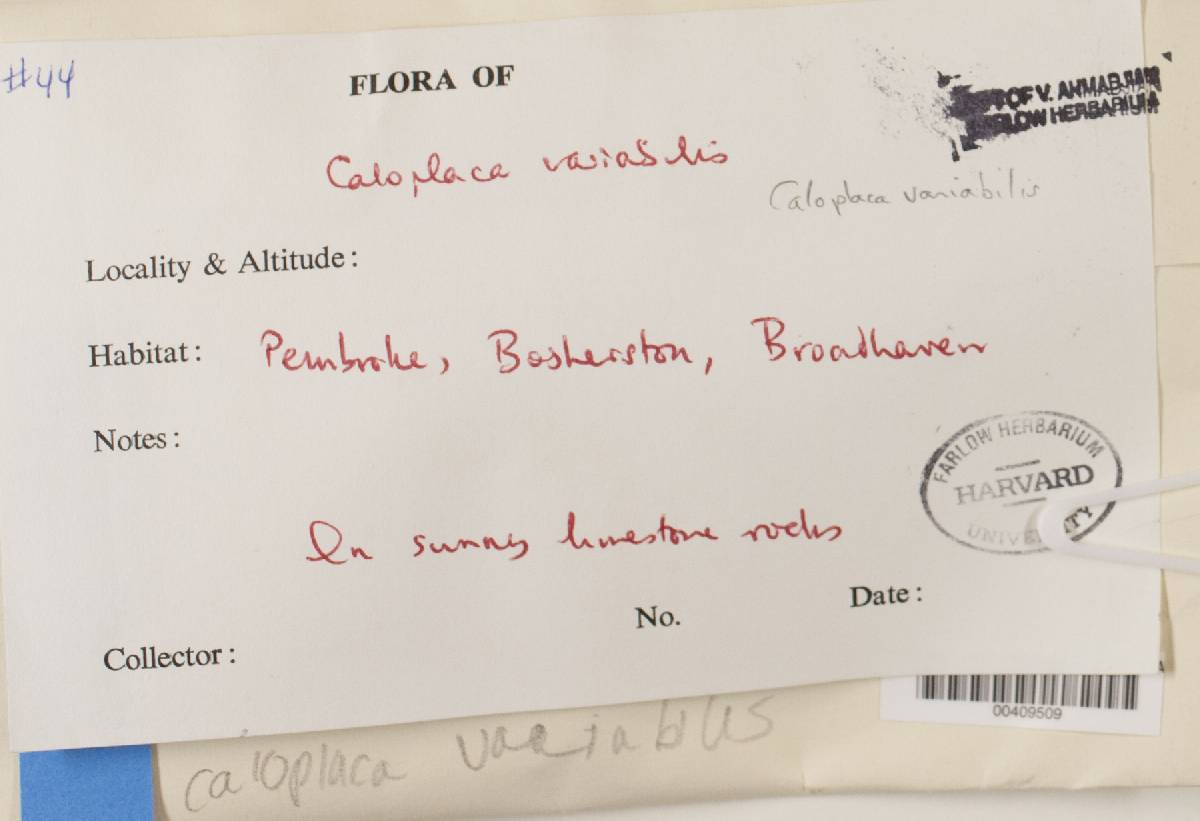 #44
FLORA OF
OF V. AHMADJIAN
HERBARIUM
Caloplaca variabilis
Caloplaca variabilis
Locality & Altitude:
Habitat: Pembroke, Bosherston, Broadhaven
Notes:
FARLOW HERBARIUM
HARVARD
UNIVERSITY
On sunny limestone rocks
No.
Date:
Collector:
00409509
Caloplaca variabilis